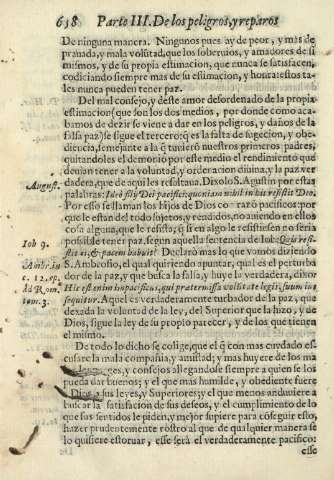 638 Parte III. De los peligros, y reparos
De ninguna manera. Ningunos pues ay de peor, y mas de
prauada, y mala volũtad, que los soberuios, y amadores de si
mismos, y de su propia estimacion, que nunca se satisfacen,
codiciando siempre mas de su estimacion, y honra: estos ta-
les nunca pueden tener paz.
Del mal consejo, y deste amor desordenado de la propia
estimacion (que son los dos medios, por donde como aca-
bamos de dezir se viene a dar en los peligros, y daños de la
falsa paz) se sigue el tercero: q̃ es la falta de sugecion, y obe-
diẽcia, semejante a la q̃ tuuierõ nuestros primeros padres,
quitandoles el demonio por este medio el rendimiento que
deuian tener a la voluntad, y ordenacion diuina, y la paz ver
August. dadera, que de aqui les resultaua. Dixolo S. Agustin por estas
palabras: Ideo filij Dei pacifici: quoniam nihil in his resistit Deo.
Por esso se llaman los hijos de Dios cõ razõ pacificos: por
que le estan del todo sujetos, y rendidos, no auiendo en ellos
cosa alguna, que le resista, q̃ si en algo le resistiessen no seria
Iob 9. possible tener paz, segun aquella sentencia de Iob: Quis resi-
stit ei, & pacem habuit? Declarò mas lo que vamos diziendo
Ambr. in S. Ambrosio, el qual quiriendo apuntar, qual es el perturba
c. 12. ep. dor de la paz, y que busca la falsa, y huye la verdadera, dixo:
ad Rom. His est enim impacificus, qui prætermissa volũtate legis, suum in
tom. 3. sequitur. Aquel es verdaderamente turbador de la paz, que
dexada la voluntad de la ley, del Superior que la hizo, y de
Dios, sigue la ley de su propio parecer, y de los que tienen
el mismo.
De todo lo dicho se colige, que el q̃ con mas cuydado es-
cusare la mala compañia, y amistad; y mas huyere de los ma
los y consejos allegandose siempre a quien se los
pueda dar buenos; y el que mas humilde, y obediente fuere
a Dios a sus leyes, y Superiores; y el que menos anduuiere a
buscar la satisfacion de sus deseos, y el cumplimiento de lo
que sus sentidos le piden, y mejor supiere para cõseguir esto,
hazer prudentemente rostro al que de qualquier manera se
lo quisiere estoruar, esse serà el verdaderamente pacifico:
esse